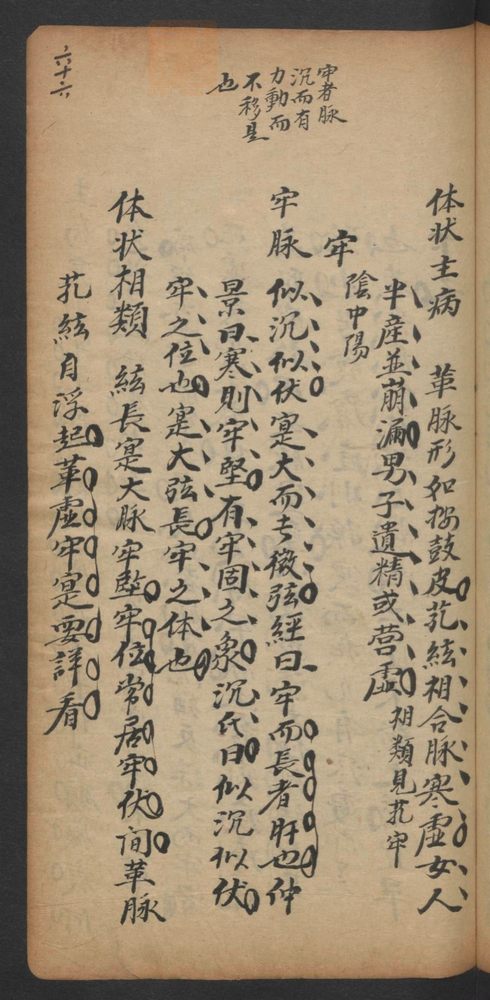 六十六
牢者脉
沉而有
力動而
不移是
也
体状主病　革脉形如按鼓皮芤絃相合脉寒虛女人
半産並崩漏男子遺精或营虛相類見芤牢
牢　陰中陽
牢脉　似沉似伏寔大而長微弦經曰牢而長者肝也仲
景曰寒則牢堅有牢固之象沉氏曰似沉似伏
牢之位也寔大弦長牢之体也
体状相類　絃長寔大脉牢堅牢位常居牢伏间革脉
芤絃自浮起革虛牢寔要詳看